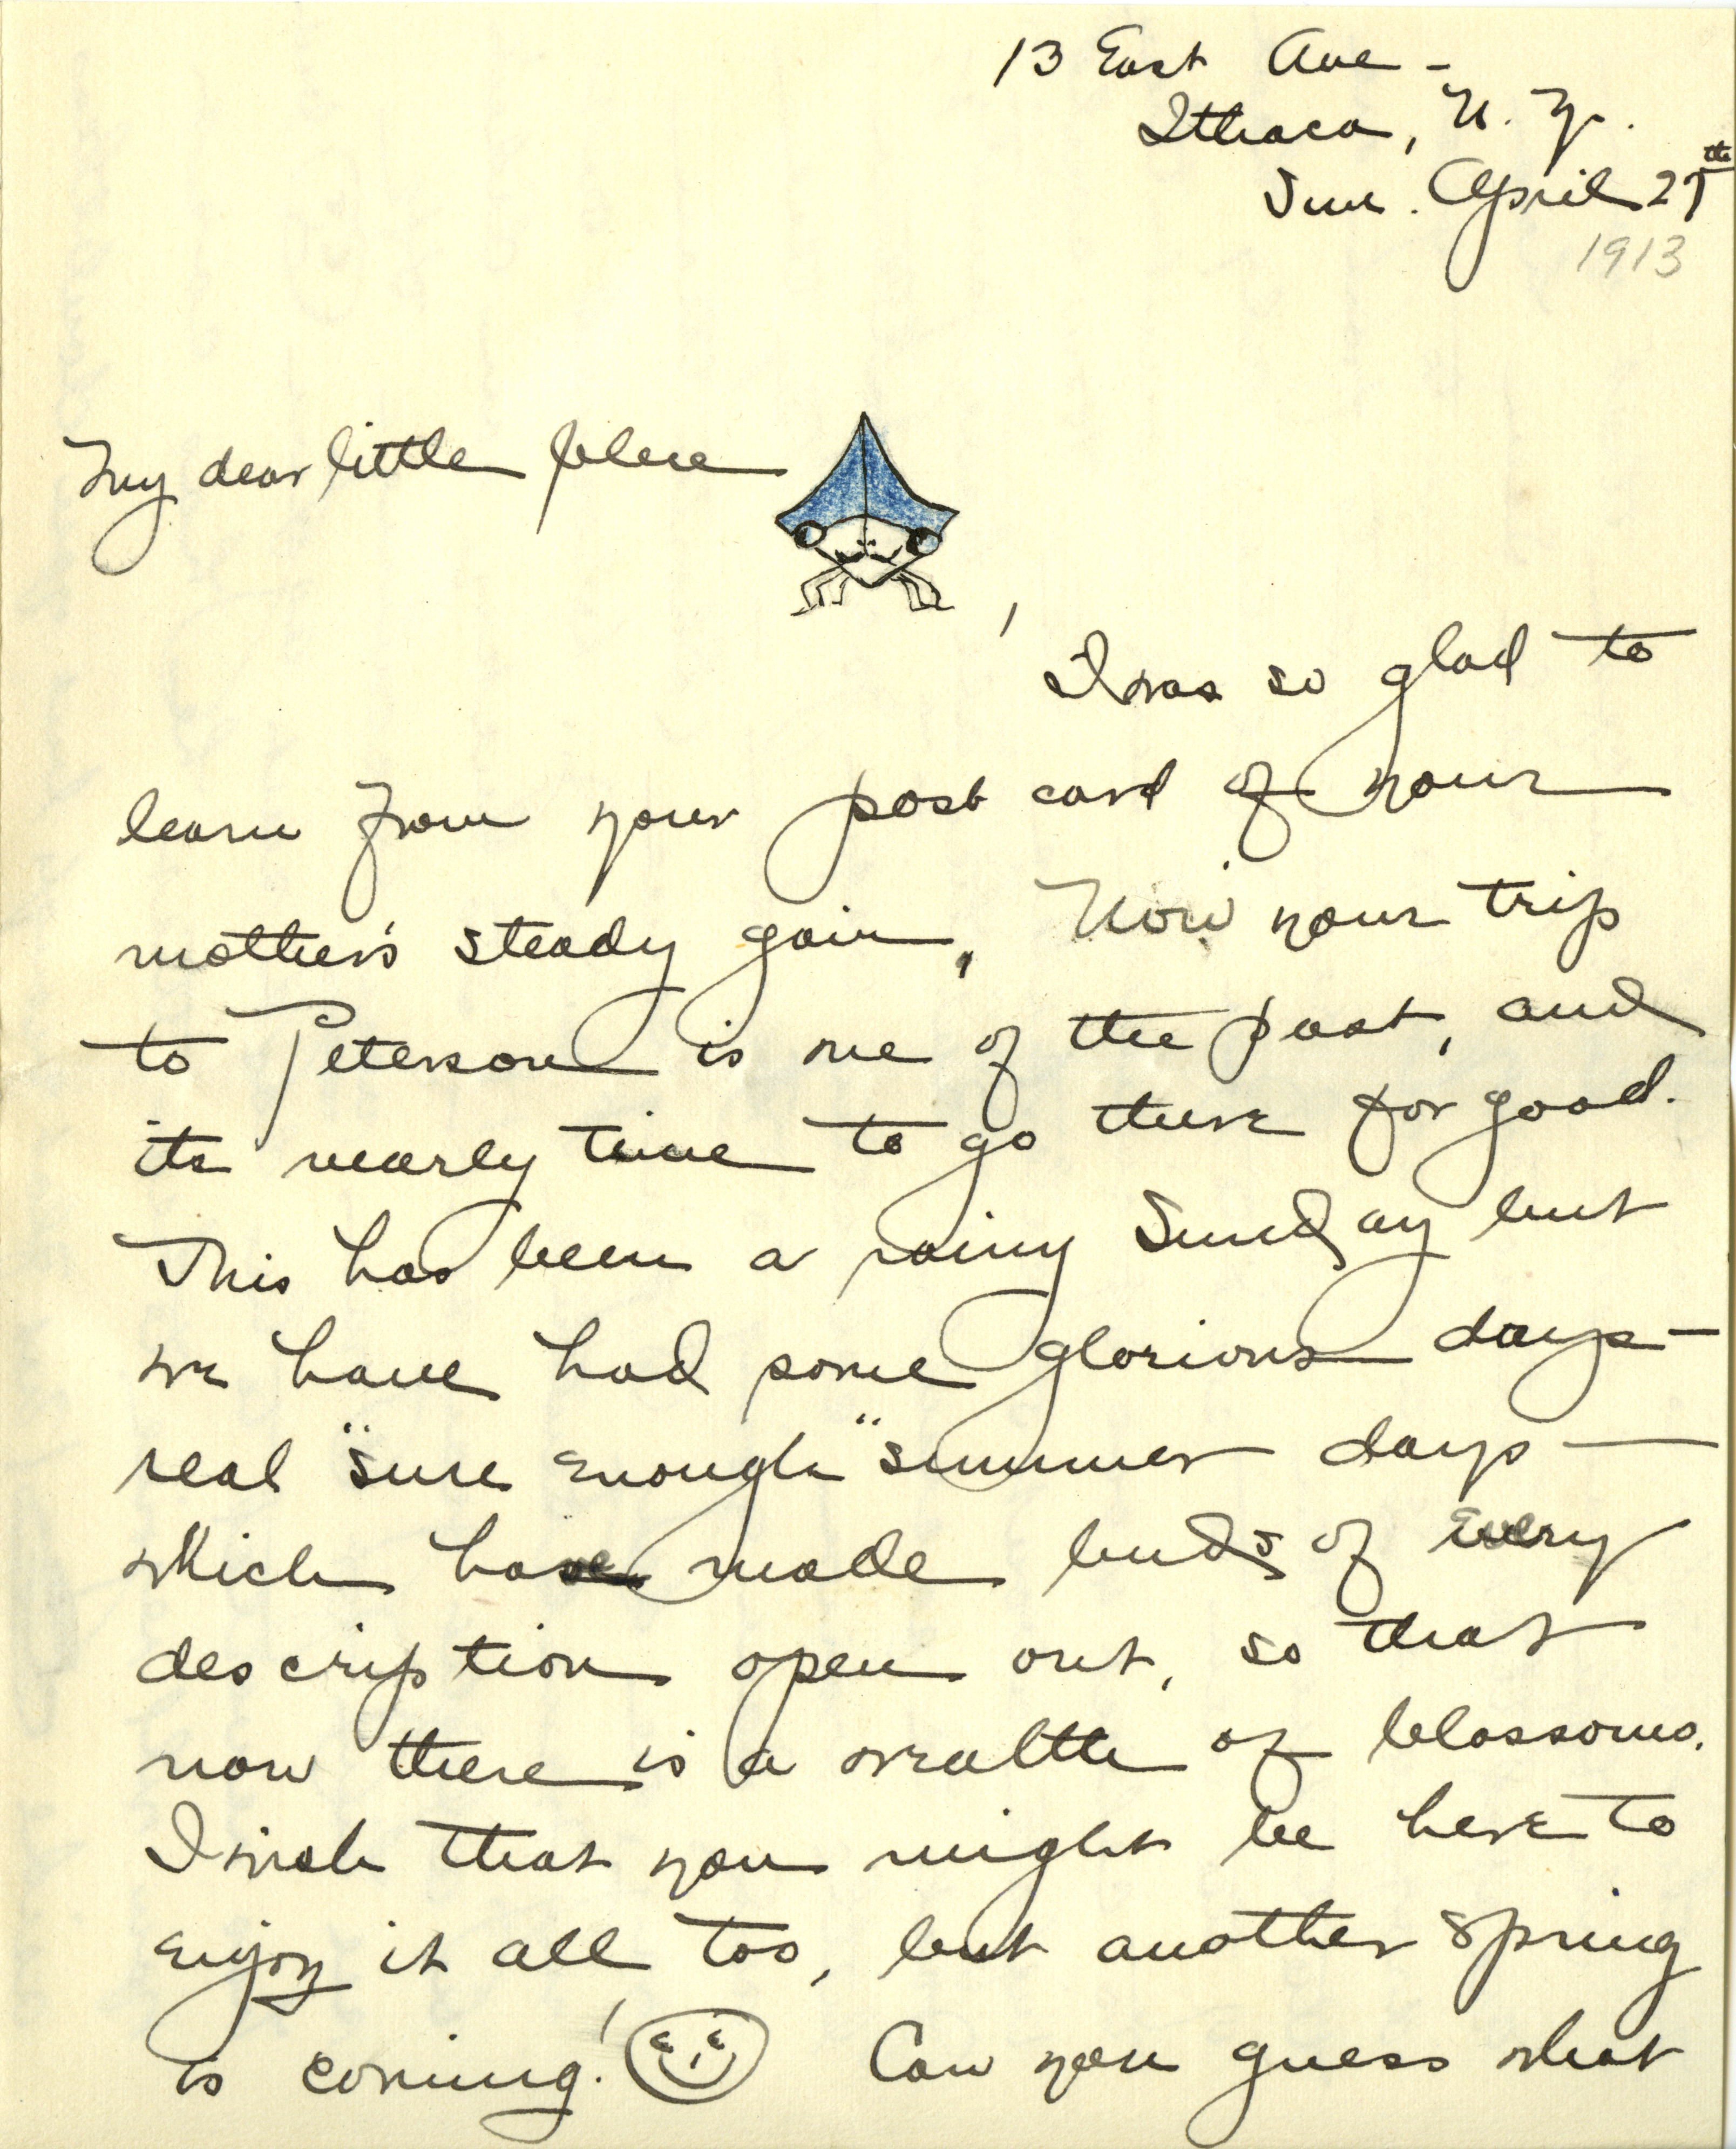 13 East Ave -
Ithaca, N. Y.
Sun. April 27th
1913
My dear little blue ,
I was so glad to
learn from your post card of your
mother's steady gain. Now your trip
to Peterson is one of the past, and
its nearly time to go there for good.
This has been a rainy Sunday but
we have had some glorious days -
real "sure enough" summer days —
which have made buds of every
description open out, so that
now there is a wealth of blossoms.
I wish that you might be here to
enjoy it all too, but another spring
is coming! Can you guess what